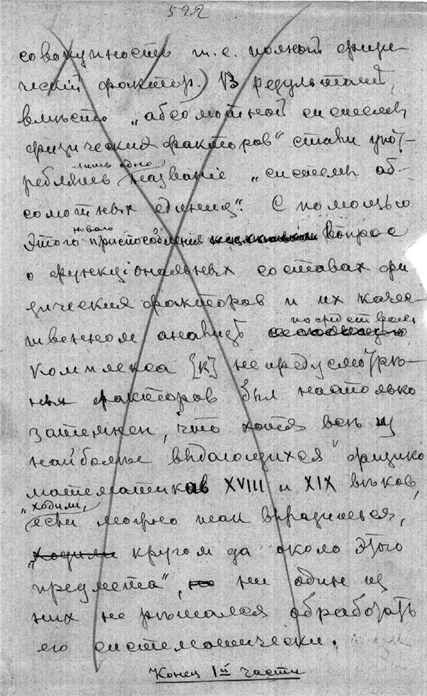 522
совокупность т.е. полной физи-
ческій фактор.) В результатѣ,
вмѣсто „абсолютной системы
физических факторов" стали упот-
лишь одно
реблять названіе „системы аб-
солютных единиц". С помощью
новаго
этого приспособления вопрос
о функціональных составах фи-
зических факторов и их каче-
посредством
ственном анализѣ
комплекса [К] непредусмотрѣн-
ных факторов был настолько
затемнен, что хотя всѣ из
наиболѣе выдающихся физико
математиков XVIII и XIX вѣков,
„ходили,
если можно так выразиться,
„ходили кругом да около этого
предмета", но ни один из
них не рѣшался обработать
его систематически.
Конец 1й части